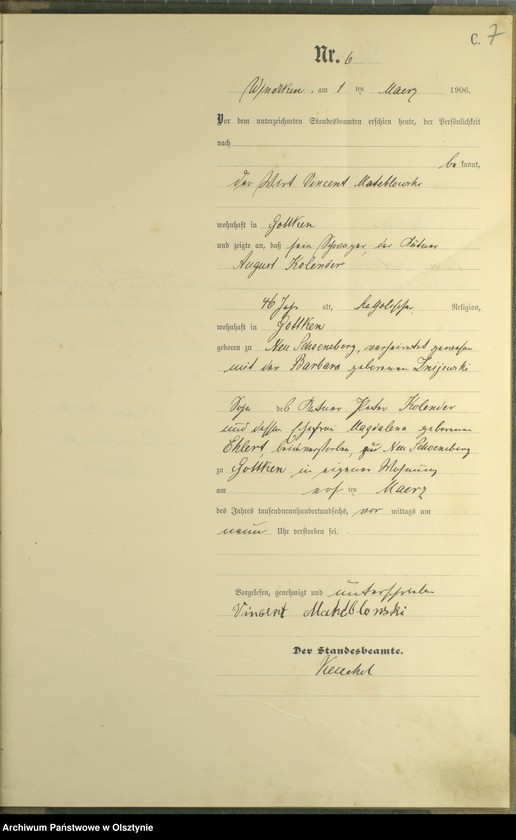 C. 7
Nr. 6
am 1 ten Maerz 1906.
Vor dem unterzeichneten Standesbeamten erschien heute, der Persönlichkeit
nach
be kannt,
der Wirt Vincent
wohnhaft in Gottken
und zeigte an, daß sein Schwager, der Kätner
August Kolender
46 Jahr alt, katholischer Religion,
wohnhaft in Gottken
geboren zu Neu Schoeneberg, verheiratet gewesen
mit der Barbara geborenen
Sohn des Kätner Peter Kolender
und dessen Ehefrau Magdalena geborenen
Ehlert, beide verstorben, zu Neu Schoeneberg
zu Gottken in eigener Wohnung
am ten Maerz
des Jahres tausendneunhundertundsechs, vor mittags um
neun Uhr verstorben sei.
Vorgelesen, genehmigt und unterschrieben
Vincent
Der Standesbeamte.
Archiwum Państwowe w Olsztynie